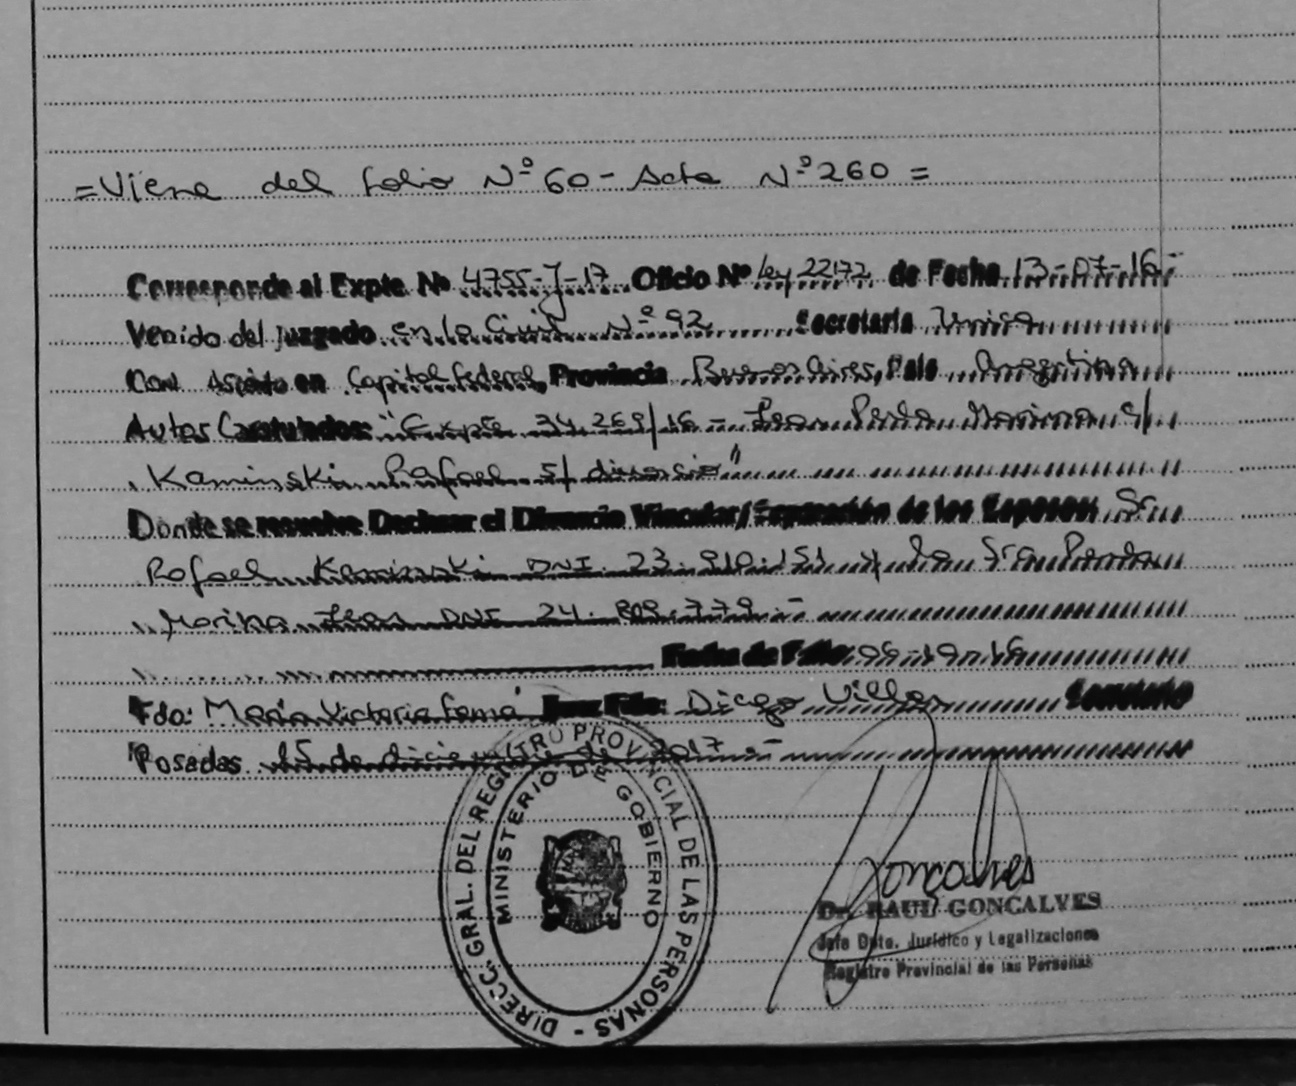 = Viene del folio Nº 60 - Acta Nº 260 =
Corresponde al Expte. Nº 4755-J-17 Oficio Nº Ley 22172 de Fecha 13-07-16-
Venido del Juzgado en lo Civil Nº 92 Secretaría Unica
Con Asiento en Capital Federal, Provincia Buenos Aires, País Argentina
Autos Caratulados: "Expte 34.269/16 - Perla Marina c/
Kaminski Rafael s/ divorcio"
Donde se resuelve Declarar el Divorcio Vincular/Separación de los Esposos Sr
Rafael Kaminski DNI. 23. 910.151 y la Sra Perla
Marina DNI 24. 779.-
Fecha de Fallo
Fdo: María Victoria Famá Juez Fdo: Diego Villar Secretario
Posadas 15 de diciembre de 2017.-
DIRECC. GRAL. DEL REGISTRO PROVINCIAL DE LAS PERSONAS -
MINISTERIO DE GOBIERNO
Gonçalves
Dr. RAUL GONCALVES
Jefe Dpto. Jurídico y Legalizaciones
Registro Provincial de las Personas